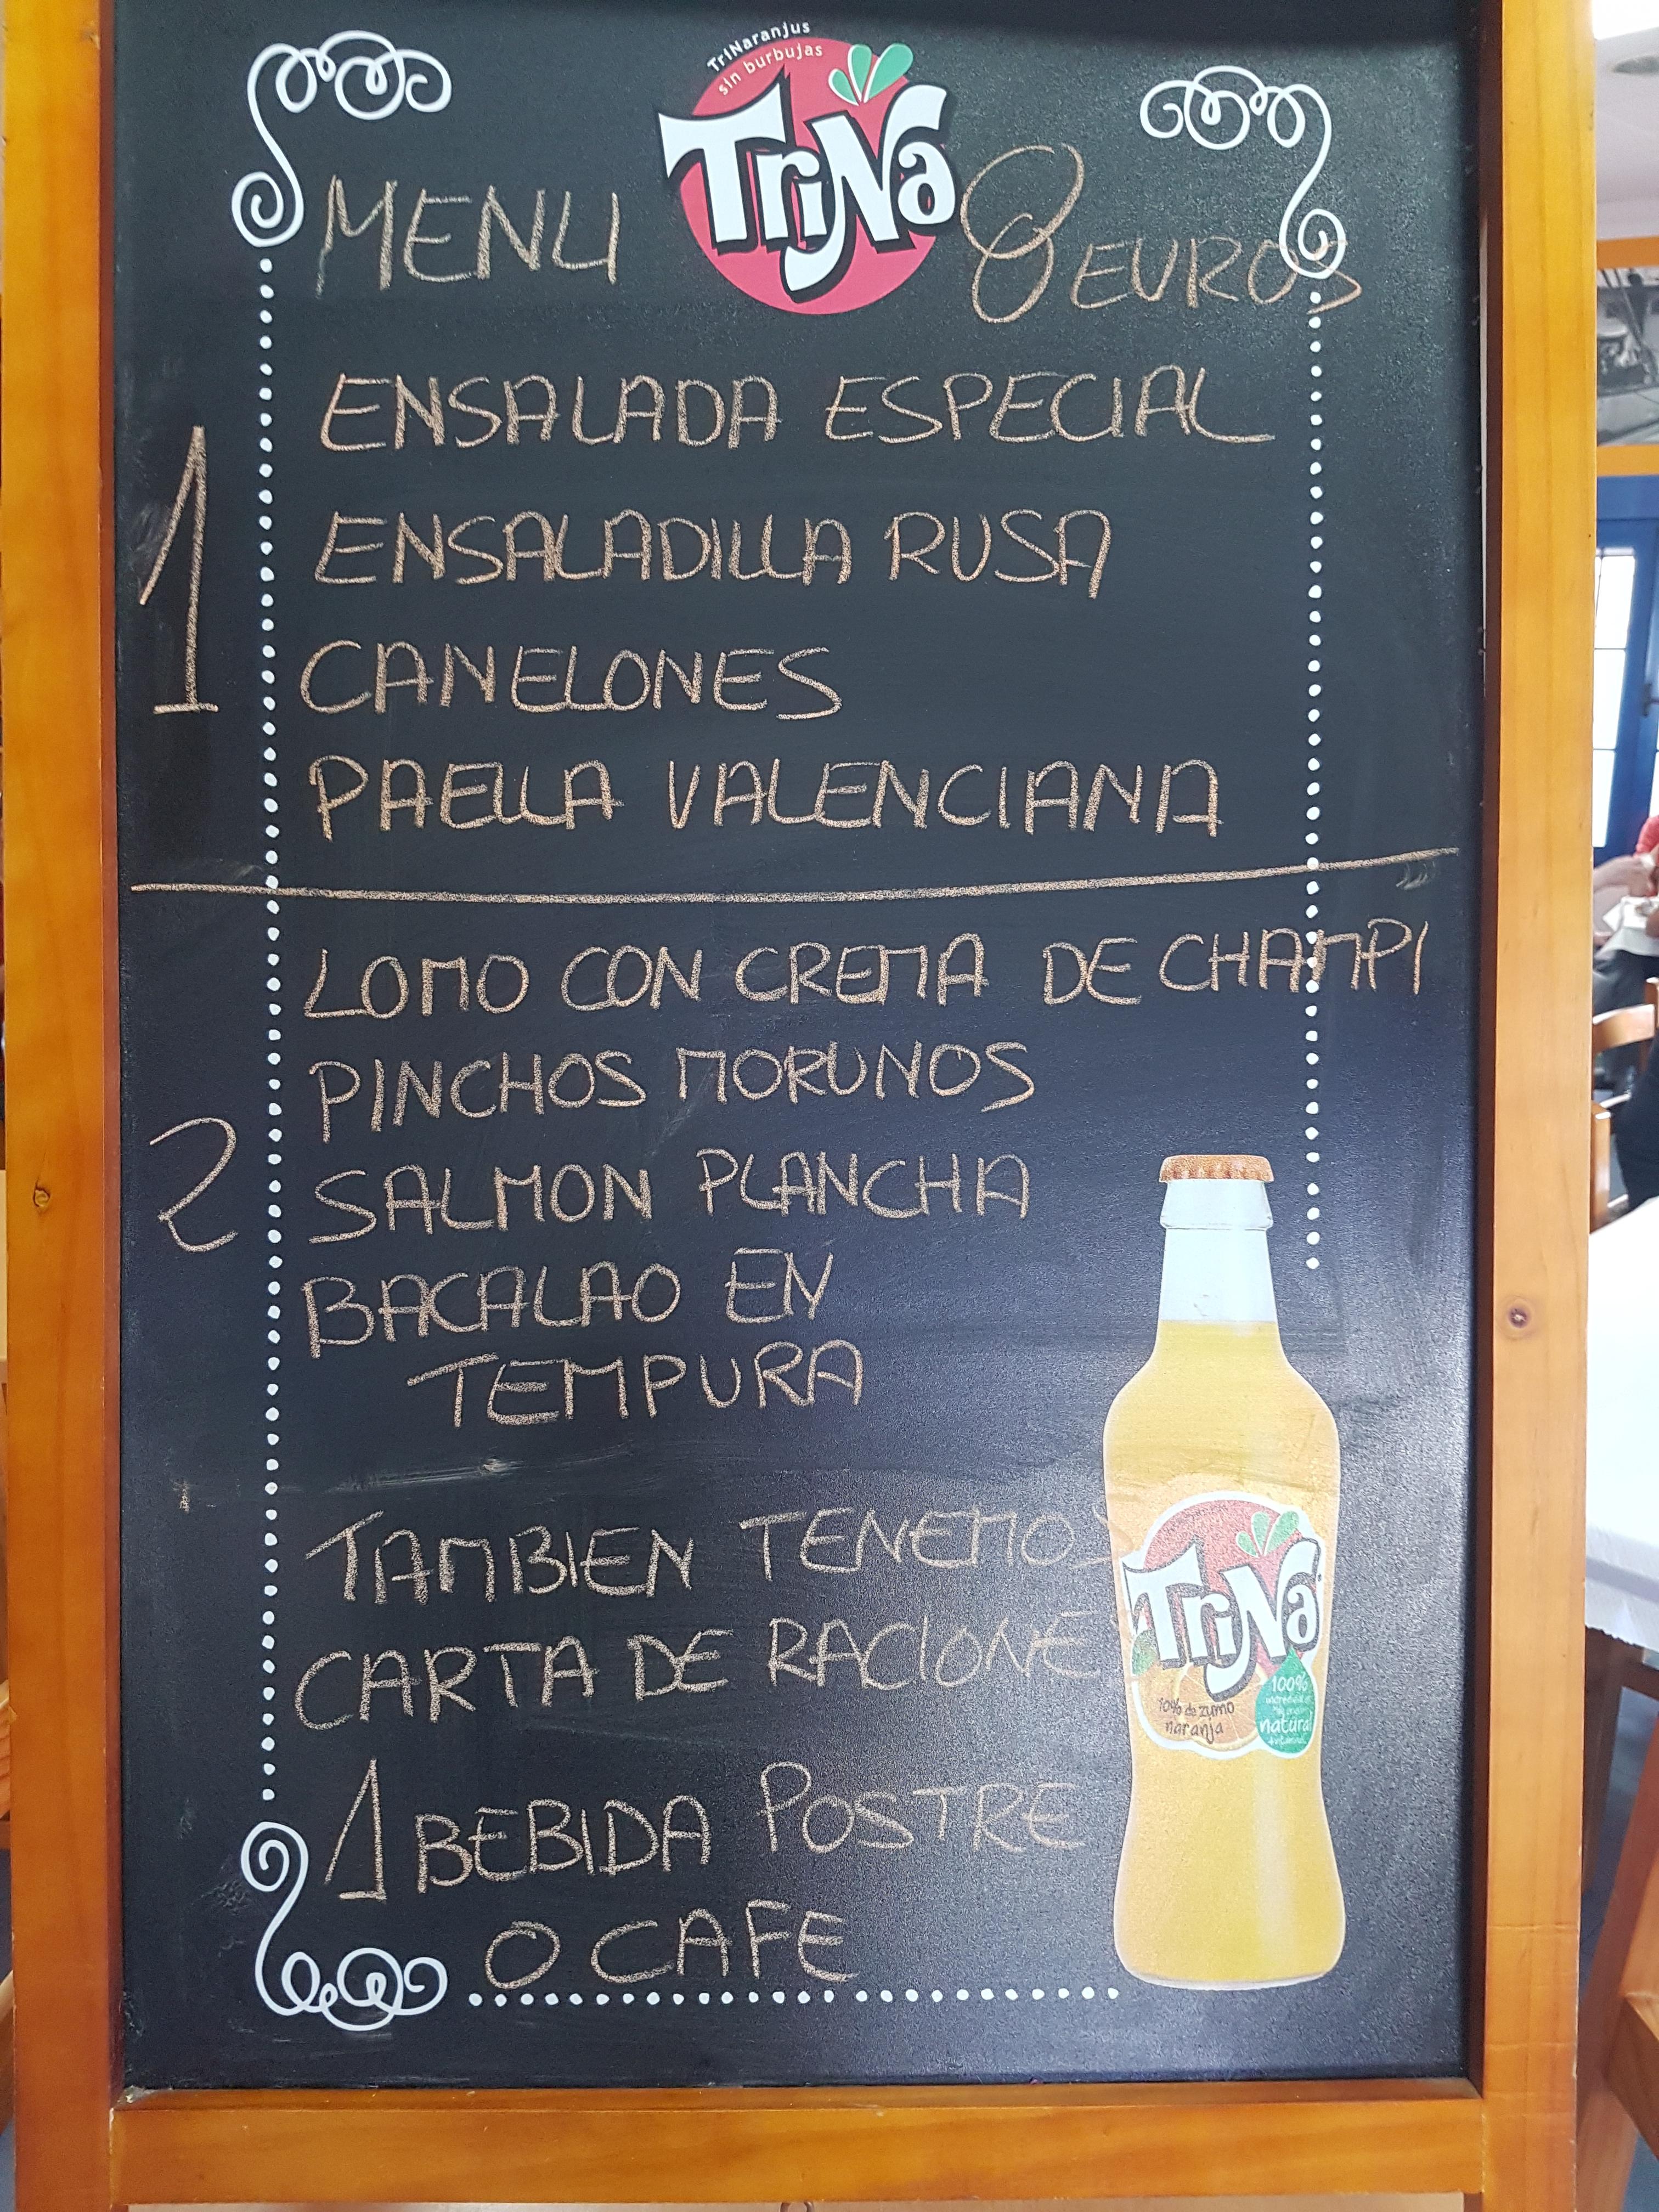 TriNaranjus
sin burbujas
TriNa
MENU 8 EUROS
1
ENSALADA ESPECIAL
ENSALADILLA RUSA
CANELONES
PAELLA VALENCIANA
2
LOMO CON CREMA DE CHAMPI
PINCHOS MORUNOS
SALMON PLANCHA
BACALAO EN
TEMPURA
TAMBIEN TENEMOS
CARTA DE RACIONE
TriNa
10% de zumo
naranja
100%
natural
1 BEBIDA POSTRE
O CAFE